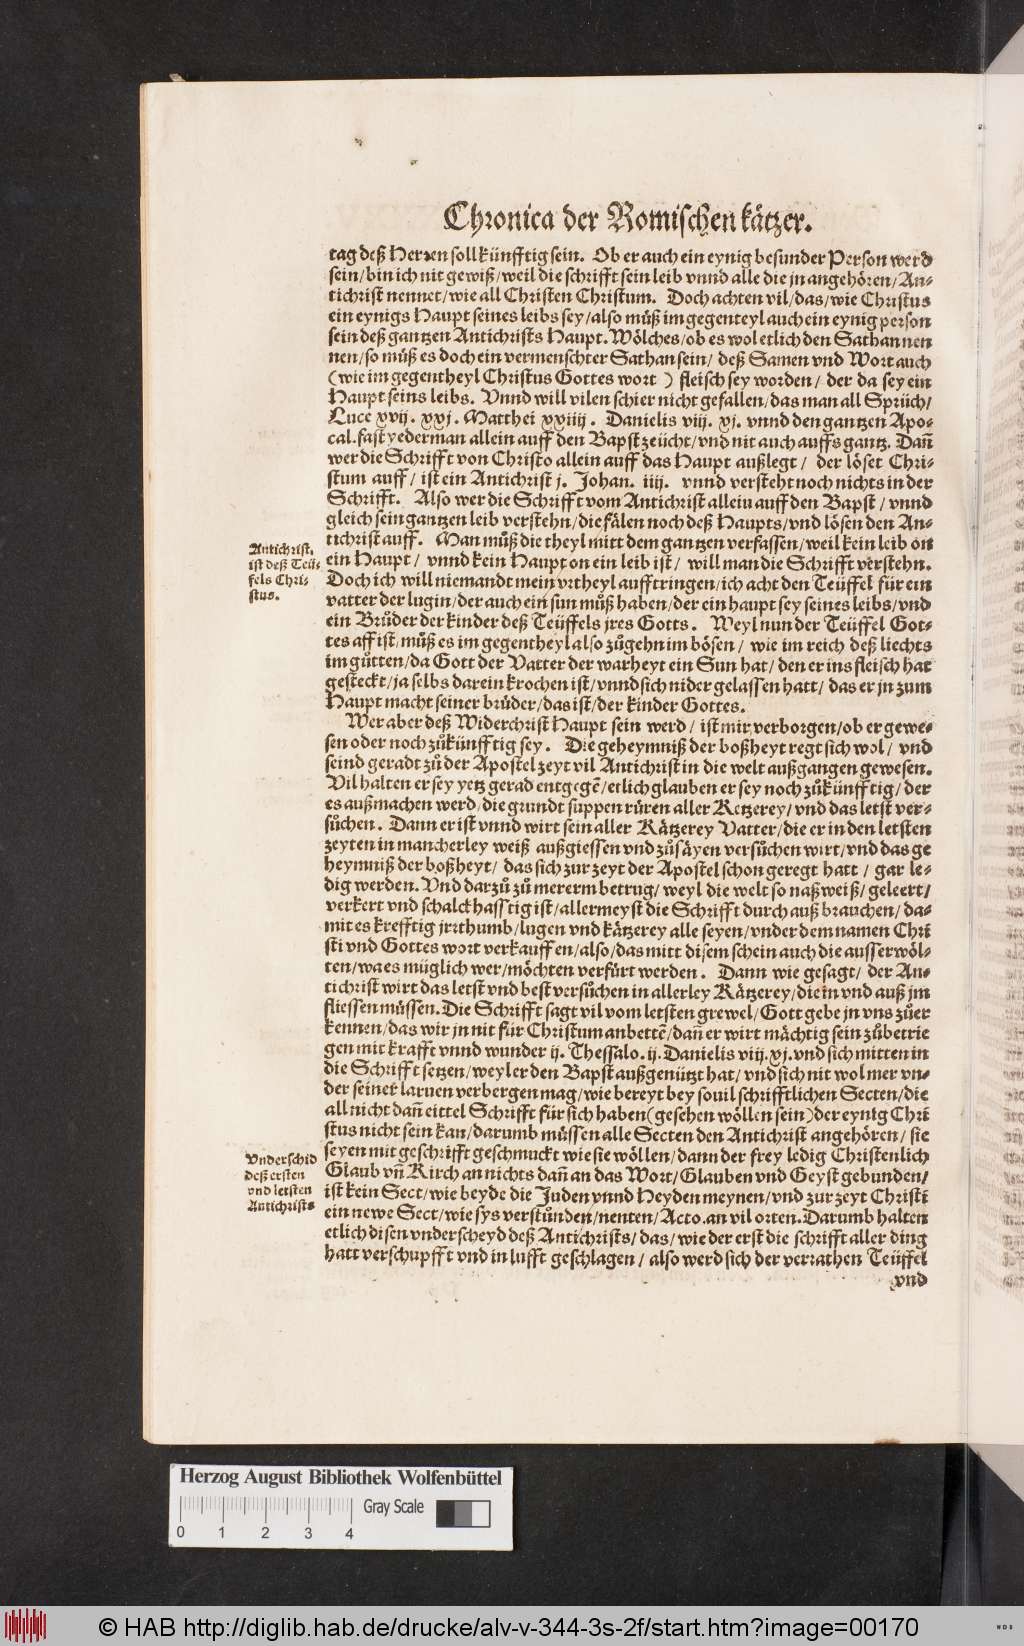 Chronica der Romischen kätzer.
tag deß Herren soll künfftig sein. Ob er auch ein eynig besunder Person werd
sein/ bin ich nit gewiß/ weil die schrifft sein leib vnnd alle die jn angehören/ An-
tichrist nennet/ wie all Christen Christum. Doch achten vil/ das/ wie Christus
ein eynigs Haupt seines leibs sey/ also můß im gegenteyl auch ein eynig person
sein deß gantzen Antichrists Haupt. Wölches/ ob es wol etlich den Sathan nen
nen/ so můß es doch ein vermenschter Sathan sein/ deß Samen vnd Wort auch
(wie im gegentheyl Christus Gottes wort) fleisch sey worden/ der da sey ein
Haupt seins leibs. Vnnd will vilen schier nicht gefallen/ das man all Sprüch/
Luce xvij. xxj. Matthei xxiiij. Danielis viij. xj. vnnd den gantzen Apo-
cal. fast yederman allein auff den Bapst zeücht/ vnd nit auch auffs gantz. Dañ
wer die Schrifft von Christo allein auff das Haupt außlegt/ der löset Chri-
stum auff/ ist ein Antichrist j. Johan. iiij. vnnd versteht noch nichts in der
Schrifft. Also wer die Schrifft vom Antichrist allein auff den Bapst/ vnnd
gleich sein gantzen leib verstehn/ die fälen noch deß Haupts/ vnd lösen den An-
tichrist auff. Man můß die theyl mitt dem gantzen verfassen/ weil kein leib on
ein Haupt/ vnnd kein Haupt on ein leib ist/ will man die Schrifft verstehn.
Doch ich will niemandt mein vrtheyl aufftringen/ ich acht den Teüffel für ein
vatter der lugin/ der auch ein sun můß haben/ der ein haupt sey seines leibs/ vnd
ein Brůder der kinder deß Teüffels jres Gotts. Weyl nun der Teüffel Got-
tes aff ist/ můß es im gegentheyl also zůgehn im bösen/ wie im reich deß liechts
im gůtten/ da Gott der Vatter der warheyt ein Sun hat/ den er ins fleisch hat
gesteckt/ ja selbs darein krochen ist/ vnnd sich nider gelassen hatt/ das er jn zum
Haupt macht seiner brüder/ das ist/ der kinder Gottes.
Antichrist.
ist deß Teü-
fels Chri-
stus.
Wer aber deß Widerchrist Haupt sein werd/ ist mir verborgen/ ob er gewe-
sen oder noch zůkünfftig sey. Die geheymniß der boßheyt regt sich wol/ vnd
seind geradt zů der Apostel zeyt vil Antichrist in die welt außgangen gewesen.
Vil halten er sey yetz gerad entgegẽ/ etlich glauben er sey noch zůkünfftig/ der
es außmachen werd/ die grundt suppen rüren aller Ketzerey/ vnd das letst ver-
sůchen. Dann er ist vnnd wirt sein aller Kätzerey Vatter/ die er in den letsten
zeyten in mancherley weiß außgiessen vnd zůsäyen versůchen wirt/ vnd das ge
heymniß der boßheyt/ das sich zur zeyt der Apostel schon geregt hatt/ gar le-
dig werden. Vnd darzů zů mererm betrug/ weyl die welt so naßweiß/ geleert/
verkert vnd schalckhafftig ist/ allermeyst die Schrifft durchauß brauchen/ da-
mit es krefftig jrrthumb/ lugen vnd kätzerey alle seyen/ vnder dem namen Chri
sti vnd Gottes wort verkauffen/ also/ das mitt disem schein auch die ausserwöl-
ten/ wa es müglich wer/ möchten verfürt werden. Dann wie gesagt/ der An-
tichrist wirt das letst vnd best versůchen in allerley Kätzerey/ die in vnd auß jm
fliessen müssen. Die Schrifft sagt vil vom letsten grewel/ Gott gebe jn vns zůer
kennen/ das wir jn nit für Christum anbettẽ/ dañ er wirt mächtig sein zůbetrie
gen mit krafft vnnd wunder ij. Thessalo. ij. Danielis viij. xj. vnd sich mitten in
die Schrifft setzen/ weyl er den Bapst außgenützt hat/ vnd sich nit wol mer vn-
der seiner laruen verbergen mag/ wie bereyt bey souil schrifftlichen Secten/ die
all nicht dañ eittel Schrifft für sich haben (gesehen wöllen sein) der eynig Chri
stus nicht sein kan/ darumb müssen alle Secten den Antichrist angehören/ sie
seyen mit geschrifft geschmuckt wie sie wöllen/ dann der frey ledig Christenlich
Glaub vñ Kirch an nichts dañ an das Wort/ Glauben vnd Geyst gebunden/
ist kein Sect/ wie beyde die Juden vnnd Heyden meynen/ vnd zur zeyt Christi
ein newe Sect/ wie sys verstůnden/ nenten/ Acto. an vil orten. Darumb halten
etlich disen vnderscheyd deß Antichrists/ das/ wie der erst die schrifft aller ding
hatt verschupfft vnd in lufft geschlagen/ also werd sich der verrathen Teüffel
vnd
Vnderschid
deß ersten
vnd letsten
Antichrists
Herzog August Bibliothek Wolfenbüttel
Gray Scale
0 1 2 3 4
© HAB http://diglib.hab.de/drucke/alv-v-344-3s-2f/start.htm?image=00170